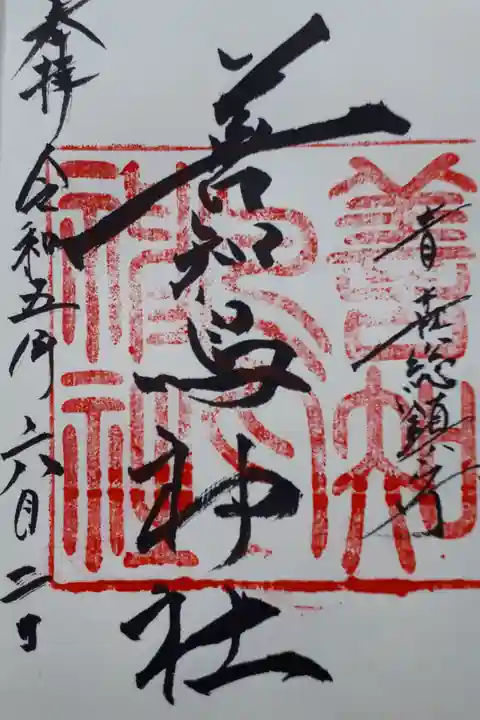 青森総鎮守
善知鳥神社
奉拝 令和五年 六月二日
善知鳥神社